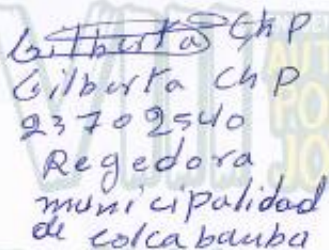 Gilberta Ch P
Gilberta Ch P
23702540
Regedora
municipalidad
de colcabamba